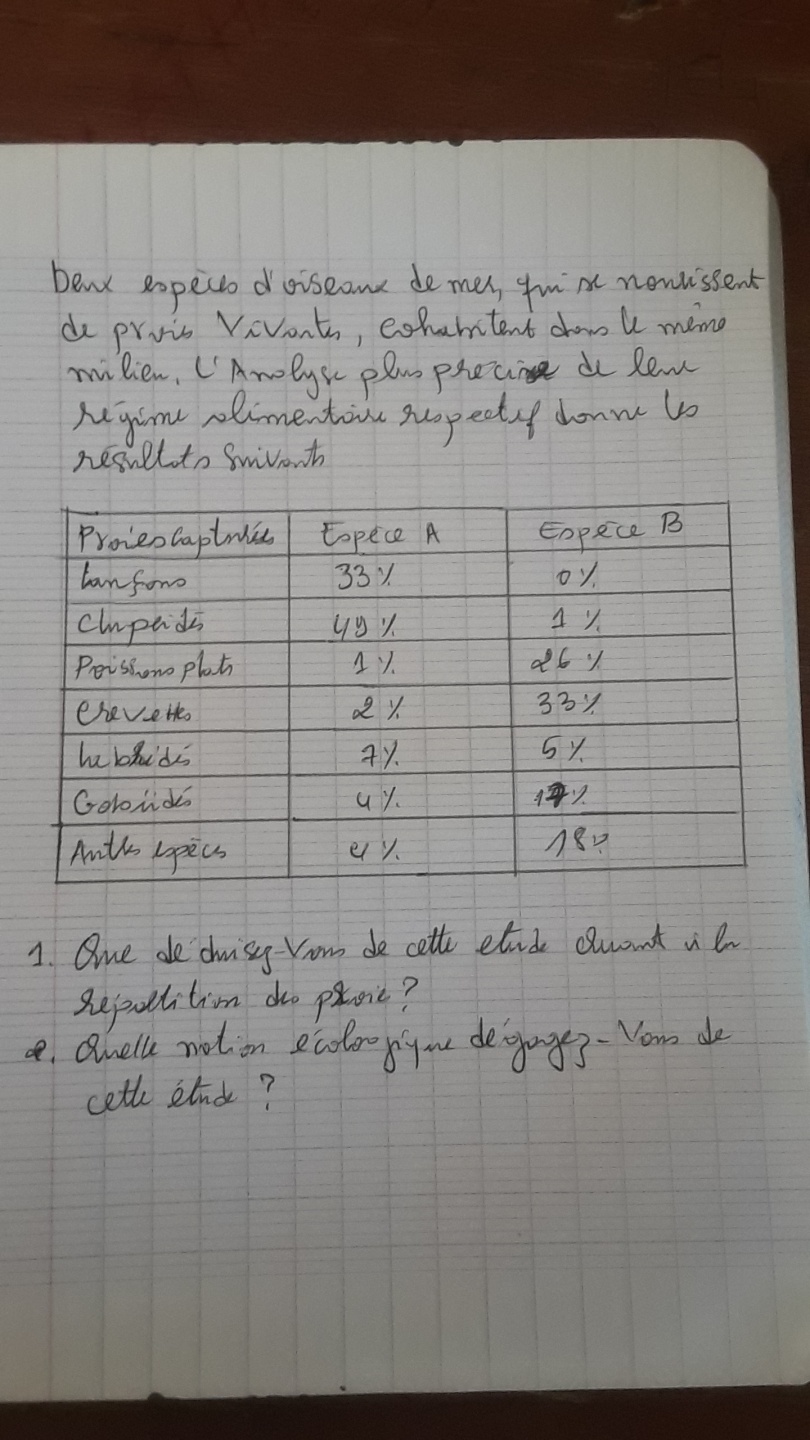 Deux espèces d'oiseaux de mer, qui se nourissent
de proies Vivantes, cohabitent dans le même
milieu. L'Analyse plus precise de leur
régime alimentaire respectif donne les
résultats Suivants
Proies Capturées Espèce A Espèce B
Lançons 33% 0%
Clupéidés 49% 1%
Poissons plats 1% 26%
Crevettes 2% 33%
Labridés 7% 5%
Gobiidés 4% 17%
Autres espèces 4% 18%
1. Que déduisez-Vous de cette etude Quant à la
répartition des proie?
2. Quelle notion écologique dégagez-Vous de
cette étude ?